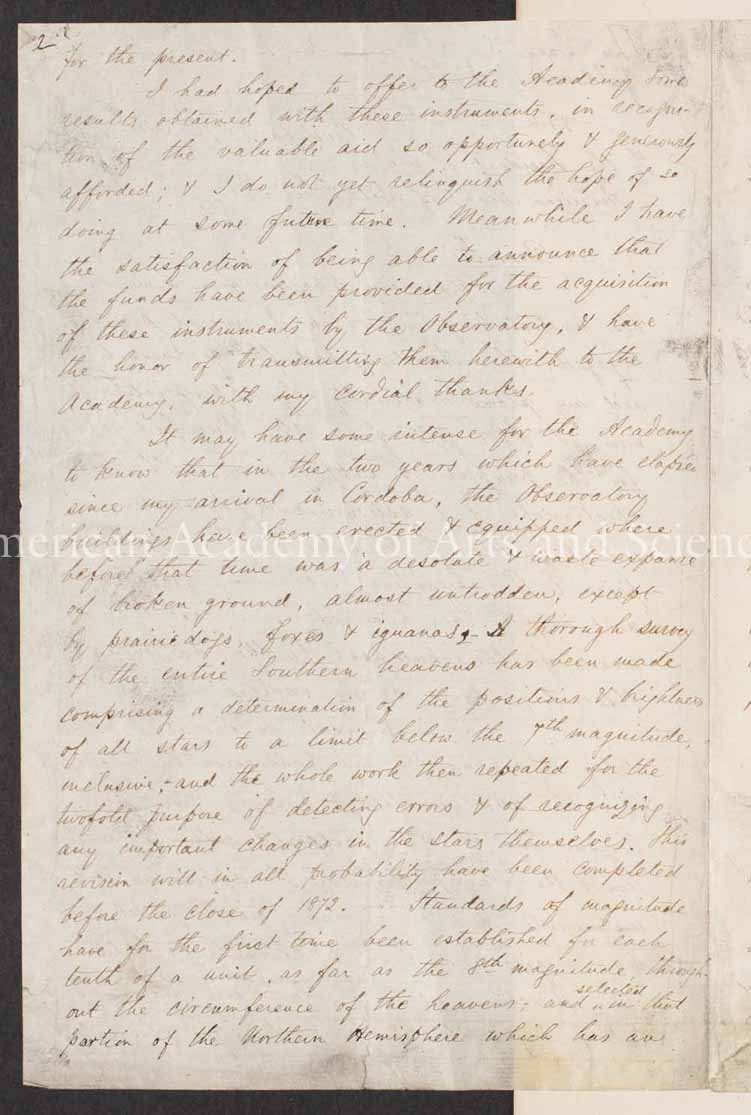 2
for the present.
I had hoped to offer to the Academy some
results obtained with these instruments, in recogni-
tion of the valuable aid so opportunely & generously
afforded; & I do not yet relinquish the hope of so
doing at some future time. Meanwhile I have
the satisfaction of being able to announce that
the funds have been provided for the acquisition
of these instruments by the Observatory, & have
the honor of transmitting them herewith to the
Academy, with my cordial thanks.
It may have some intense for the Academy
to know that in the two years which have elapsed
since my arrival in Cordoba, the Observatory
buildings have been erected & equipped where
before that time was a desolate & waste expanse
of broken ground, almost untrodden, except
by prairie dogs, foxes & iguanas;- A thorough survey
of the entire Southern heavens has been made
comprising a determination of the positions & brightness
of all stars to a limit below the 7th magnitude,
inclusive;- and the whole work then repeated for the
twofold purpose of detecting errors & of recognizing
any important changes in the stars themselves. This
revision will in all probability have been completed
before the close of 1872. Standards of magnitude
have for the first time been established for each
tenth of a unit, as far as the 8th magnitude, through-
out the circumference of the heavens; and selected in that
portion of the Northern Hemisphere which has an
American Academy of Arts and Scienc